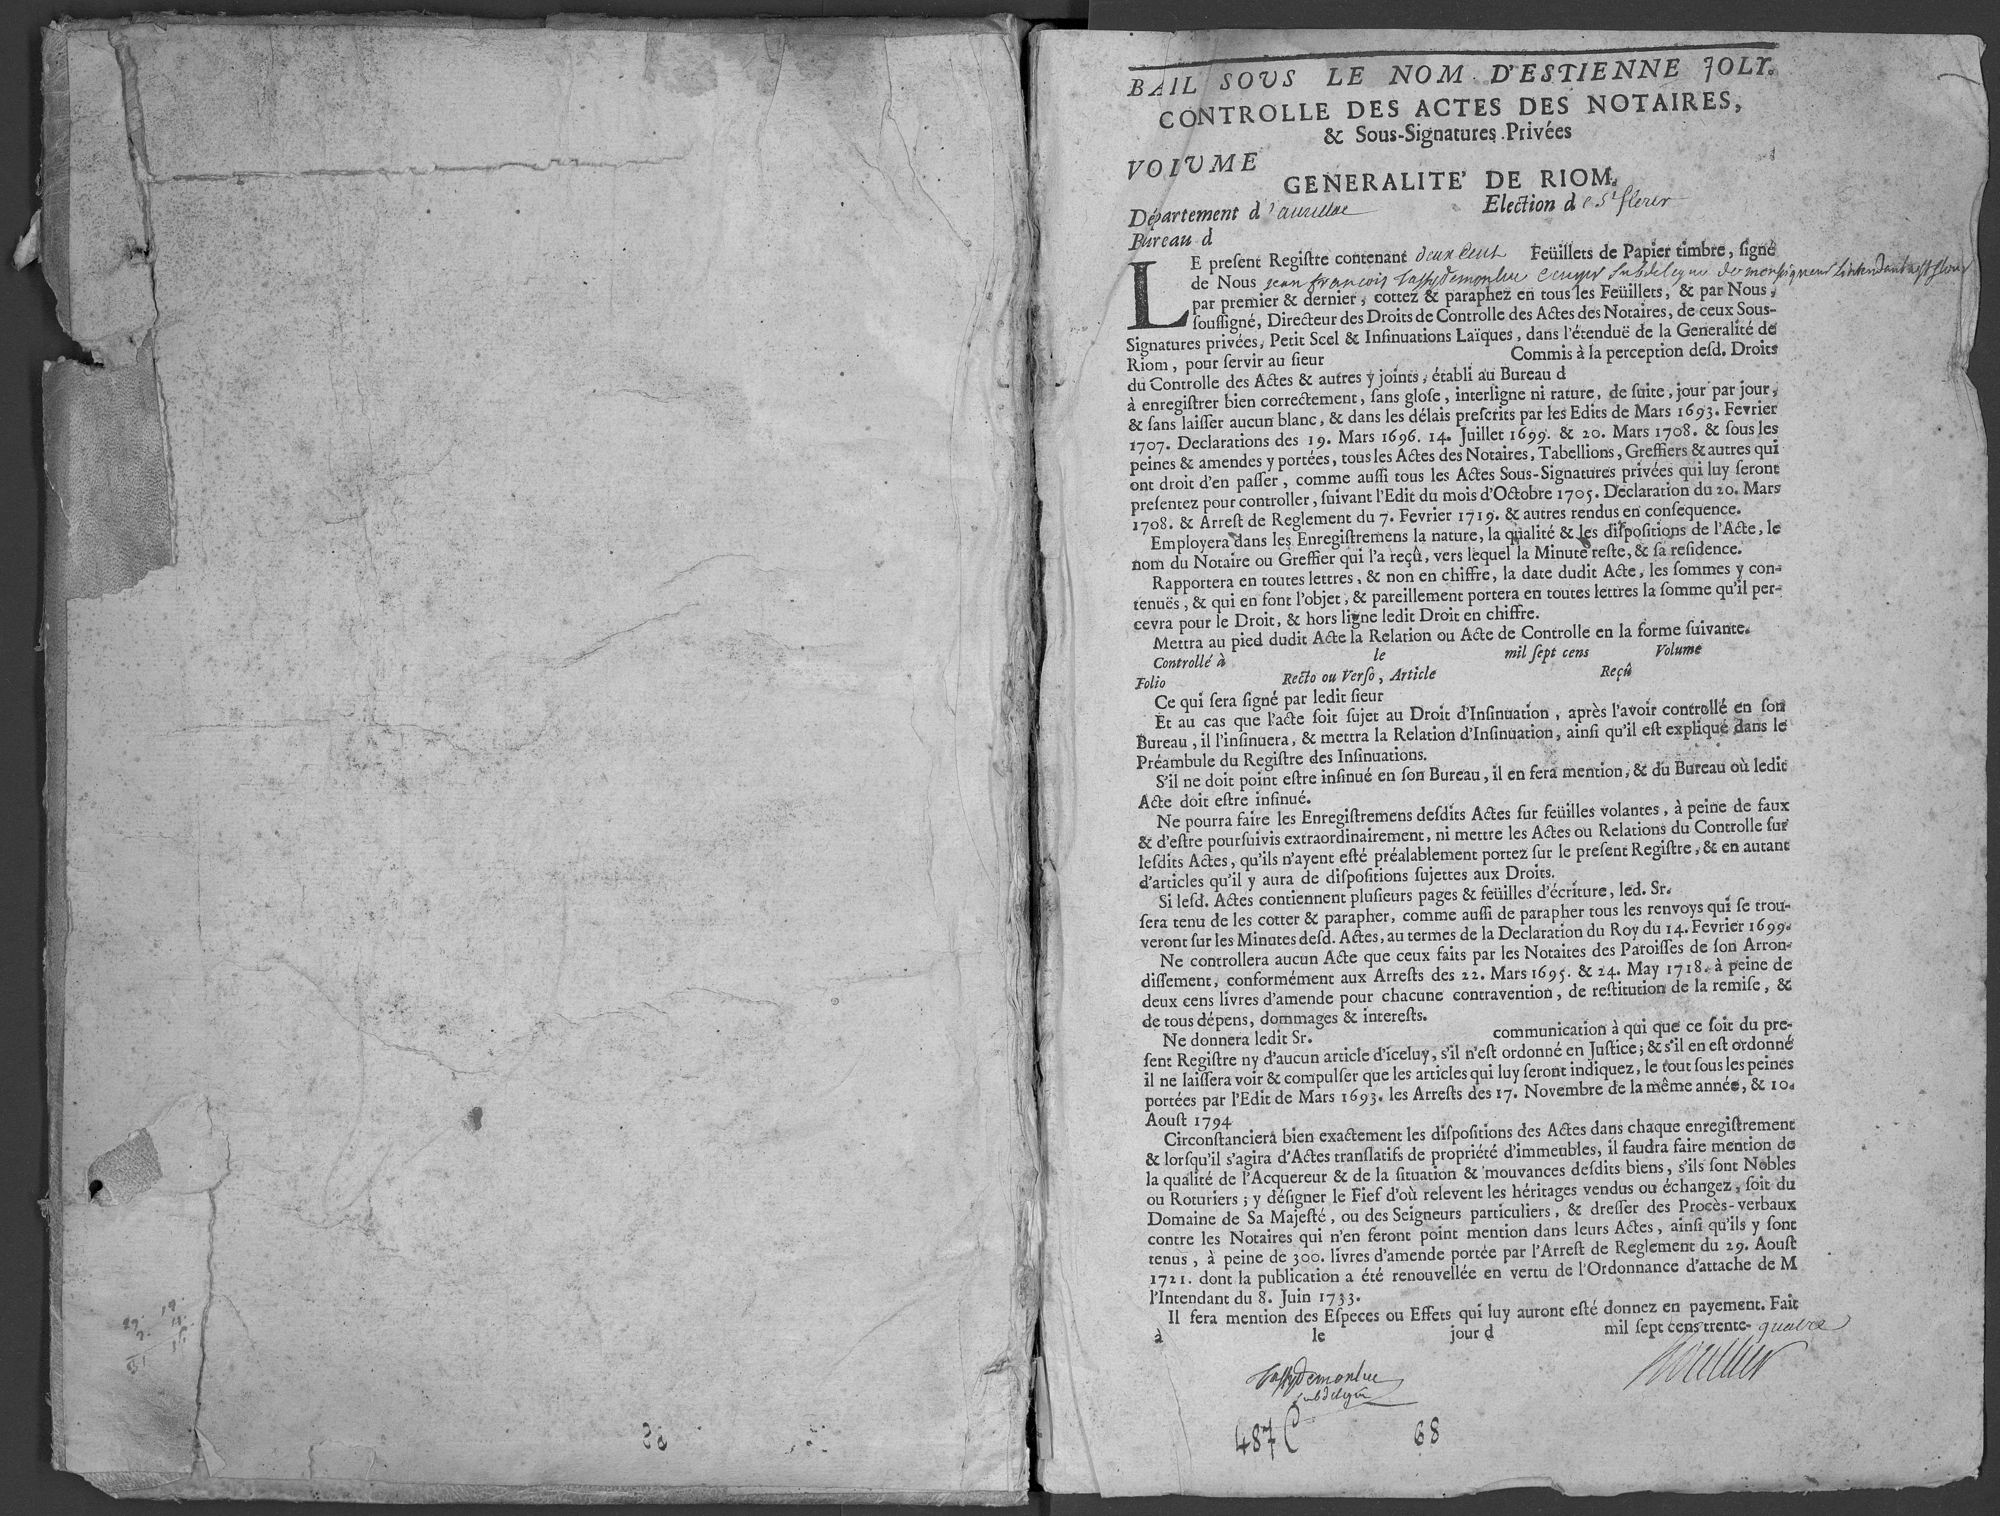 BAIL SOUS LE NOM D'ESTIENNE JOLY.
CONTROLLE DES ACTES DES NOTAIRES,
& Sous-Signatures Privées
VOLUME
GENERALITE' DE RIOM.
Département d'aurillac Election de St flour
Bureau d
LE present Registre contenant deux Cent Feüillets de Papier timbre, signé
de Nous jean francois Tassydemonluc ecuyer subdelegue de monseigneur lintendant a st flour
par premier & dernier, cottez & paraphez en tous les Feüillets, & par Nous,
soussigné, Directeur des Droits de Controlle des Actes des Notaires, de ceux Sous-
Signatures privées, Petit Scel & Insinuations Laïques, dans l'étenduë de la Generalité de
Riom, pour servir au sieur Commis à la perception desd. Droits
du Controlle des Actes & autres y joints, établi au Bureau d
à enregistrer bien correctement, sans glose, interligne ni rature, de suite, jour par jour,
& sans laisser aucun blanc, & dans les délais prescrits par les Edits de Mars 1693. Fevrier
1707. Declarations des 19. Mars 1696. 14. Juillet 1699. & 20. Mars 1708. & sous les
peines & amendes y portées, tous les Actes des Notaires, Tabellions, Greffiers & autres qui
ont droit d'en passer, comme aussi tous les Actes Sous-Signatures privées qui luy seront
presentez pour controller, suivant l'Edit du mois d'Octobre 1705. Declaration du 20. Mars
1708. & Arrest de Reglement du 7. Fevrier 1719. & autres rendus en consequence.
Employera dans les Enregistremens la nature, la qualité & les dispositions de l'Acte, le
nom du Notaire ou Greffier qui l'a reçû, vers lequel la Minute reste, & sa residence.
Rapportera en toutes lettres, & non en chiffre, la date dudit Acte, les sommes y con-
tenuës, & qui en font l'objet, & pareillement portera en toutes lettres la somme qu'il per-
cevra pour le Droit, & hors ligne ledit Droit en chiffre.
Mettra au pied dudit Acte la Relation ou Acte de Controlle en la forme suivante.
Controllé à le mil sept cens Volume
Folio Recto ou Verso, Article Reçû
Ce qui sera signé par ledit sieur
Et au cas que l'acte soit sujet au Droit d'Insinuation, après l'avoir controllé en son
Bureau, il l'insinuera, & mettra la Relation d'Insinuation, ainsi qu'il est expliqué dans le
Préambule du Registre des Insinuations.
S'il ne doit point estre insinué en son Bureau, il en fera mention, & du Bureau où ledit
Acte doit estre insinué.
Ne pourra faire les Enregistremens desdits Actes sur feüilles volantes, à peine de faux
& d'estre poursuivis extraordinairement, ni mettre les Actes ou Relations du Controlle sur
lesdits Actes, qu'ils n'ayent esté préalablement portez sur le present Registre, & en autant
d'articles qu'il y aura de dispositions sujettes aux Droits.
Si lesd. Actes contiennent plusieurs pages & feüilles d'écriture, led. Sr.
sera tenu de les cotter & parapher, comme aussi de parapher tous les renvoys qui se trou-
veront sur les Minutes desd. Actes, au termes de la Declaration du Roy du 14. Fevrier 1699.
Ne controllera aucun Acte que ceux faits par les Notaires des Paroisses de son Arron-
dissement, conformément aux Arrests des 22. Mars 1695. & 24. May 1718. à peine de
deux cens livres d'amende pour chacune contravention, de restitution de la remise, &
de tous dépens, dommages & interests.
Ne donnera ledit Sr. communication à qui que ce soit du pre-
sent Registre ny d'aucun article d'iceluy, s'il n'est ordonné en Justice; & s'il en est ordonné
il ne laissera voir & compulser que les articles qui luy seront indiquez, le tout sous les peines
portées par l'Edit de Mars 1693. les Arrests des 17. Novembre de la même année, & 10.
Aoust 1794
Circonstanciera bien exactement les dispositions des Actes dans chaque enregistrement
& lorsqu'il s'agira d'Actes translatifs de propriété d'immeubles, il faudra faire mention de
la qualité de l'Acquereur & de la situation & mouvances desdits biens, s'ils sont Nobles
ou Roturiers; y désigner le Fief d'où relevent les héritages vendus ou échangez, soit du
Domaine de Sa Majesté, ou des Seigneurs particuliers, & dresser des Procès-verbaux
contre les Notaires qui n'en feront point mention dans leurs Actes, ainsi qu'ils y sont
tenus, à peine de 300. livres d'amende portée par l'Arrest de Reglement du 29. Aoust
1721. dont la publication a été renouvellée en vertu de l'Ordonnance d'attache de M
l'Intendant du 8. Juin 1733.
Il fera mention des Especes ou Effets qui luy auront esté donnez en payement. Fait
à le jour d mil sept cens trente-quatre
Tassydemonluc
subdelegué
487 C 68